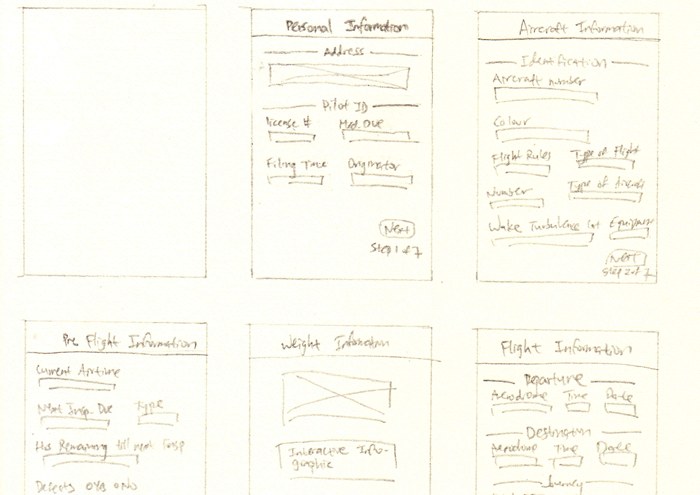 Personal Information
Address
Pilot ID
License # Med. Due
Filing Time Originator
NEXT
Step 1 of 7
Aircraft Information
Identification
Aircraft number
Colour
Flight Rules Type of Flight
Number Type of Aircraft
Wake Turbulence Cat Equipment
NEXT
Step 2 of 7
Pre Flight Information
Current Airtime
Next Insp. Due Type
Hrs Remaining till next Insp
Defects O Yes O No
Weight Information
Interactive Info-
graphic
Flight Information
Departure
Aerodrome Time Date
Destination
Aerodrome Time Date
Journey